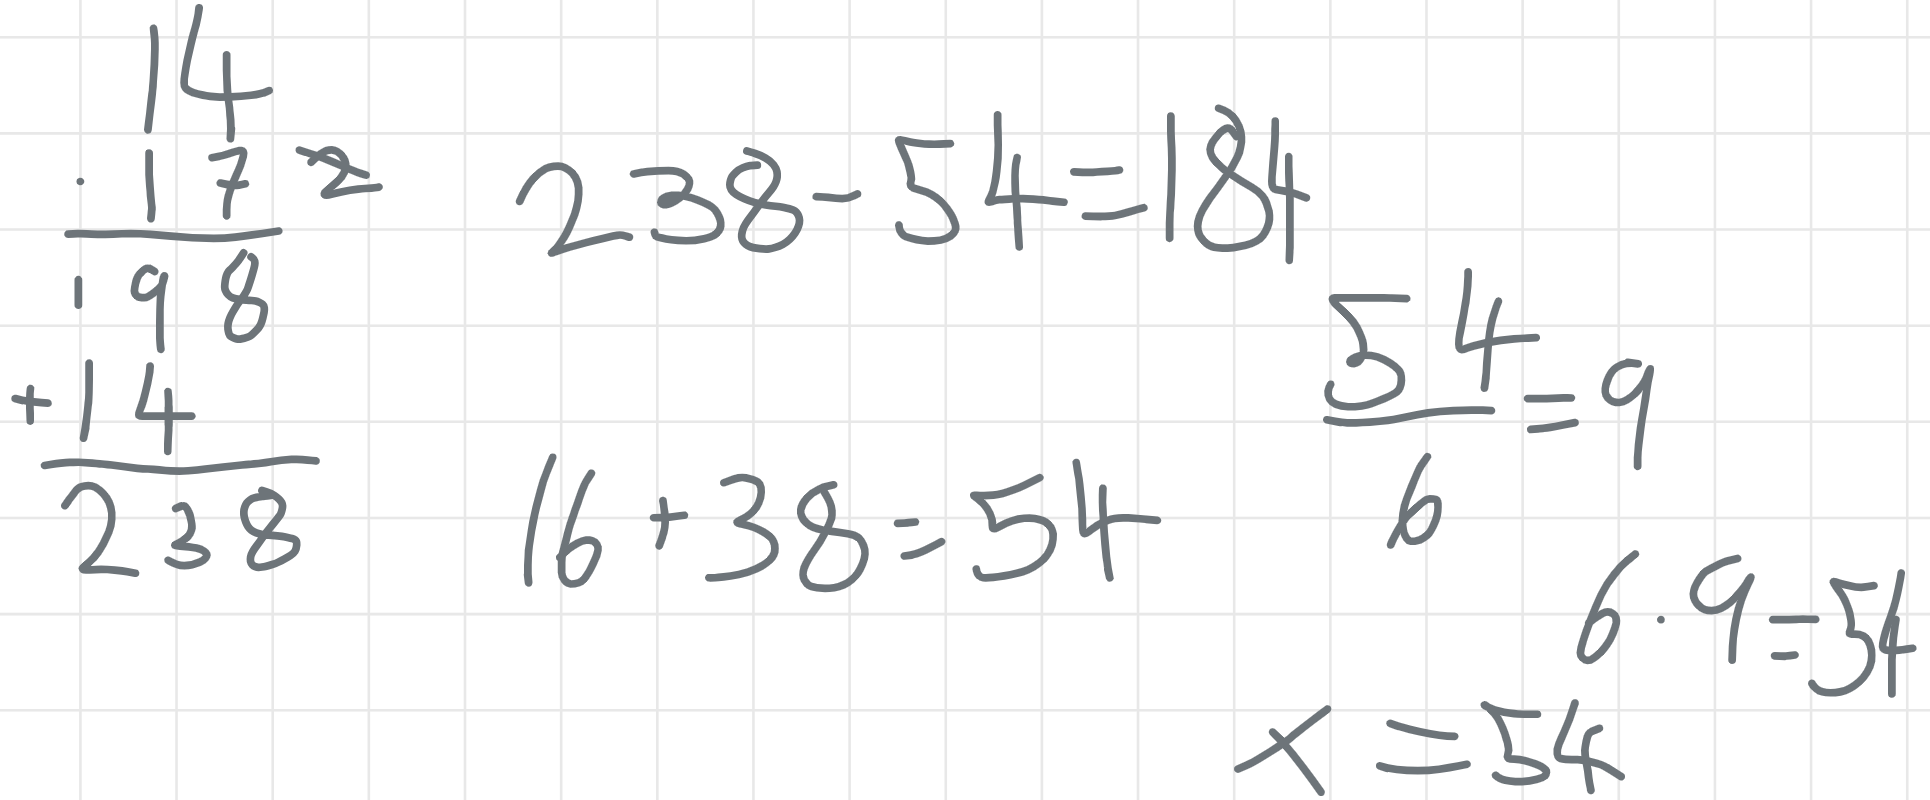 14
· 17 2
198
+14
238
238-54=184
16+38=54
54
6
=9
6·9=54
x=54